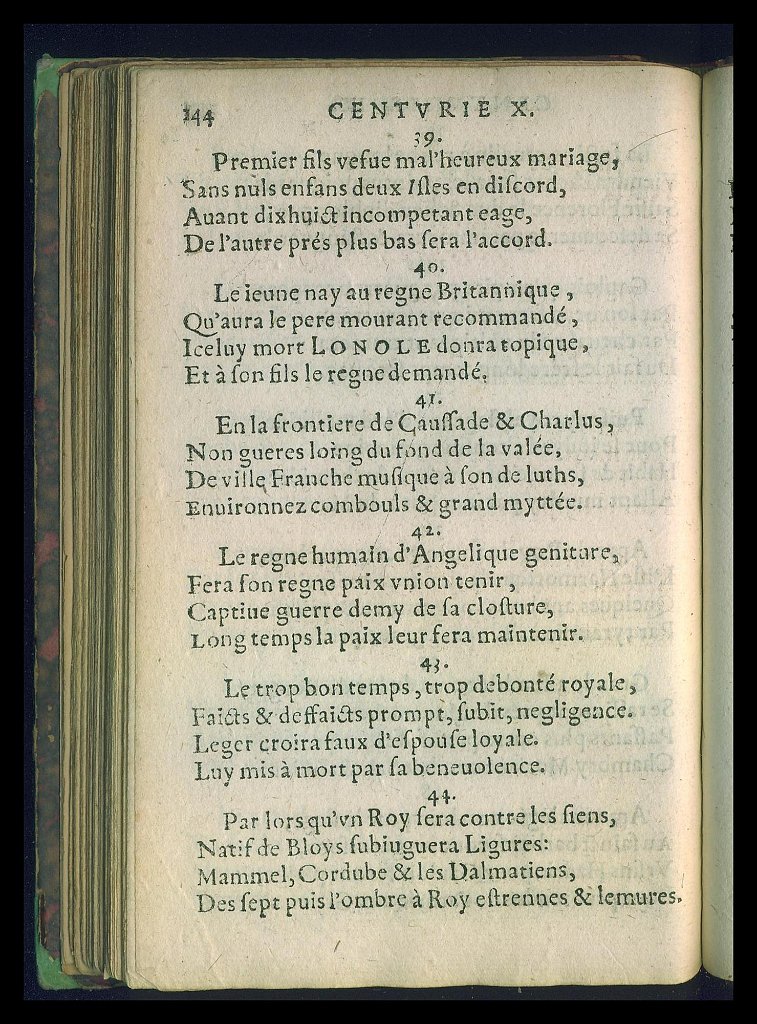 144 CENTVRIE X.
39.
Premier fils vefue mal'heureux mariage,
Sans nuls enfans deux Iſles en diſcord,
Auant dixhuict incompetant eage,
De l'autre prés plus bas ſera l'accord.
40.
Le ieune nay au regne Britannique,
Qu'aura le pere mourant recommandé,
Iceluy mort LONOLE donra topique,
Et à ſon fils le regne demandé.
41.
En la frontiere de Cauſſade & Charlus,
Non gueres loing du fond de la valée,
De ville Franche muſique à ſon de luths,
Enuironnez combouls & grand myttée.
42.
Le regne humain d'Angelique geniture,
Fera ſon regne paix vnion tenir,
Captiue guerre demy de ſa cloſture,
Long temps la paix leur fera maintenir.
43.
Le trop bon temps, trop de bonté royale,
Faicts & deffaicts prompt, ſubit, negligence.
Leger croira faux d'eſpouſe loyale.
Luy mis à mort par ſa beneuolence.
44.
Par lors qu'vn Roy ſera contre les ſiens,
Natif de Bloys ſubiuguera Ligures:
Mammel, Cordube & les Dalmatiens,
Des ſept puis l'ombre à Roy eſtrennes & lemures.